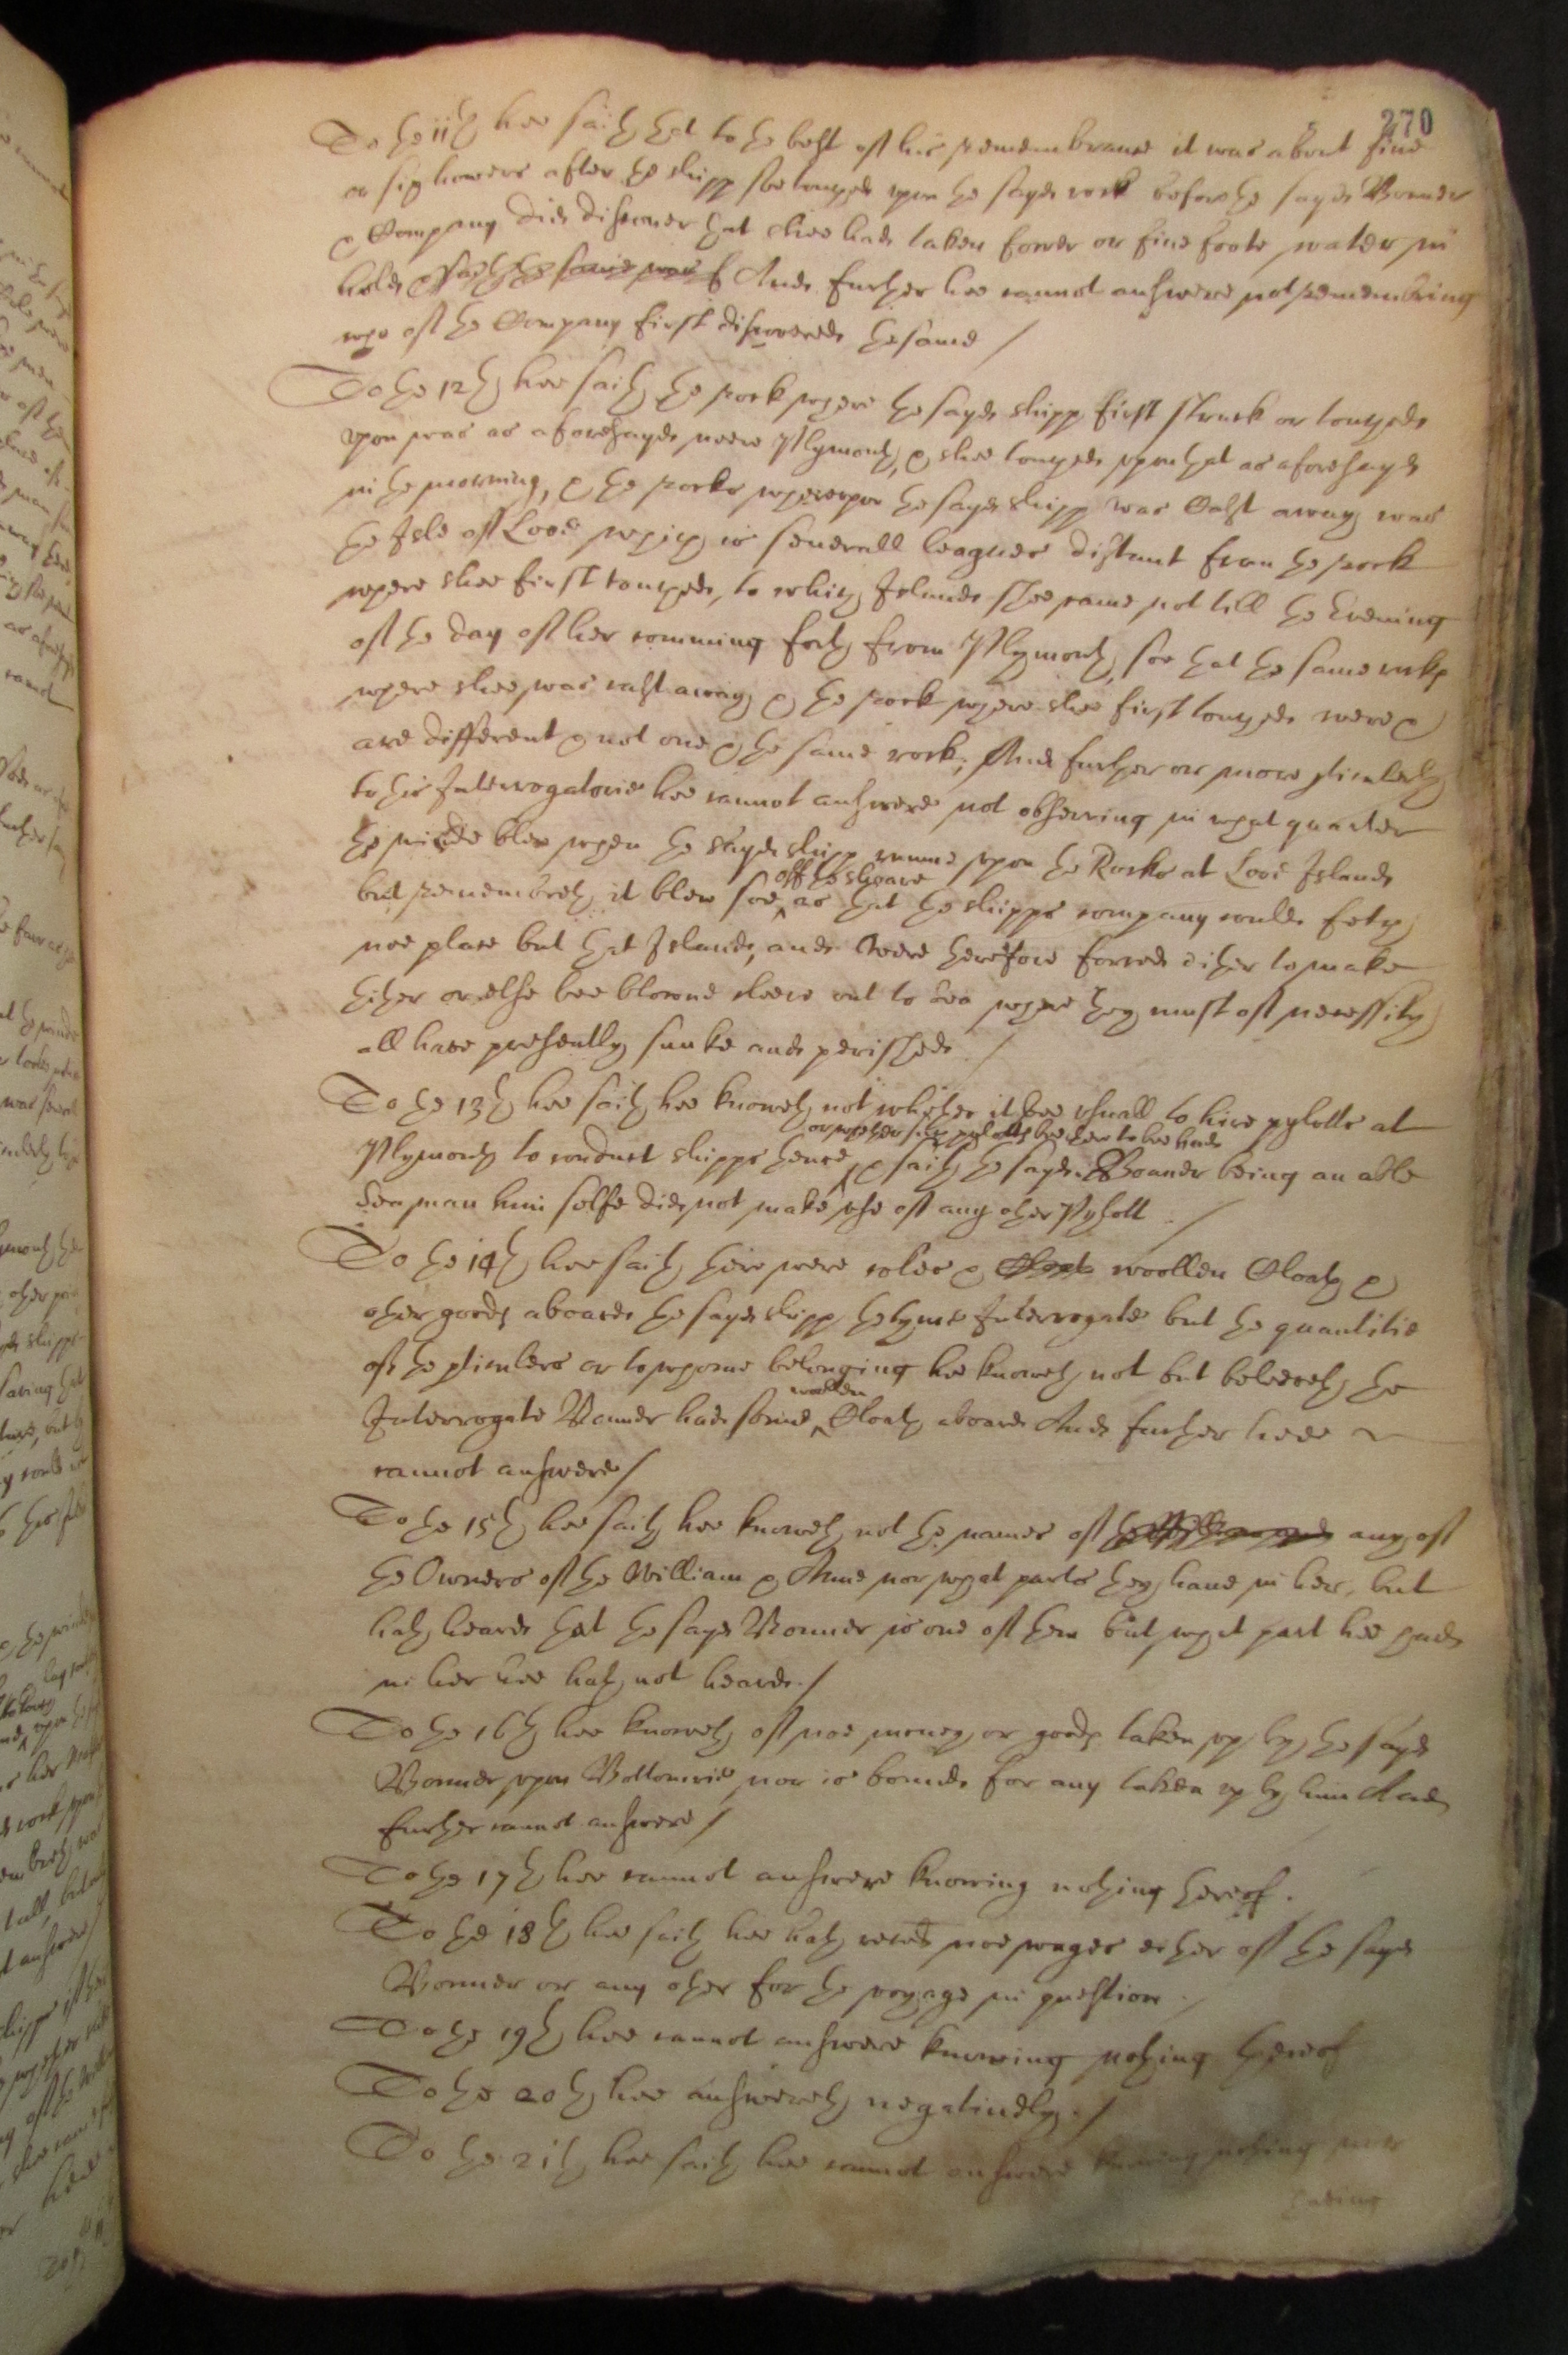 270
To the 11th hee saith that to the best of his remembrance it was about five
or six howers after the shipp soe touched upon the sayd rock before the sayde Bonner
& Company did discover that shee had taken fower or five foote water in
hold & saith the same was And further hee cannot answere not remembring
who of the Company first discovered the same /
To the 12th hee saith the rock where the sayde shipp first struck or touched
upon was as aforesayde neere Plymouth, & shee touched upon that as aforesayd
in the morning, & the rocks whereupon the sayd shipp was Cast away was
the Isle of Looe which is severall leagues distant from the rock
where shee first touched, to which Island shee came not till the Evening
of the day of her comming forth from Plymouth, soe that the same rocks
where shee was cast away & the rock where shee first touched were &
are different & not one & the same rock; And further or more pticulerly
to this Interrogatorie hee cannot answere not observing in what quarter
the winde blew when the sayd shipp runne upon the Rocks at Looe Island
off the shoare
but remembreth it blew soe as that the shipps company could fetch
noe place but that Island, and were therefore forced either to make
thither or else bee blowne cleere out to Sea where they must of necessity
all have presently sunke and perished /
To the 13th hee saith hee knoweth not whether it bee usuall to hire pylotts at
or whether such pylotts bee there to bee had
Plymouth to conduct shipps thence & saith the sayd Bonner being an able
Sea man him selfe did not make use of any other Pylott /
To the 14th hee saith there were and & Cloath woollen Cloath &
other goods aboard the sayd shipp the tyme Interrogate but the quantitie
of the pticulers or to whome belonging hee knoweth not but beleeveth the
woollen
Interrogate Bonner had some Cloath aboard And further hee
cannot answere /
To the 15th hee saith hee knoweth not the names of any of
the Owners of the William & Anne nor what parts they have in her, but
hath heard that the sayd Bonner is one of them but what part hee hade
in her hee hath not heard. /
To the 16th hee knoweth of noe money or goods taken up by the sayd
Bonner upon Bottomrie nor is bound for any taken up by him And
further cannot answere /
To the 17th hee cannot answere knowing nothing thereof.
To the 18th hee saith hee hath recd noe wages either of the sayd
Bonner or any other for the voyage in question /
To the 19th hee cannot answere knowing nothing thereof
To the 20th hee answereth negatively. /
To the 21th hee saith hee cannot answere knowing nothing nor
having